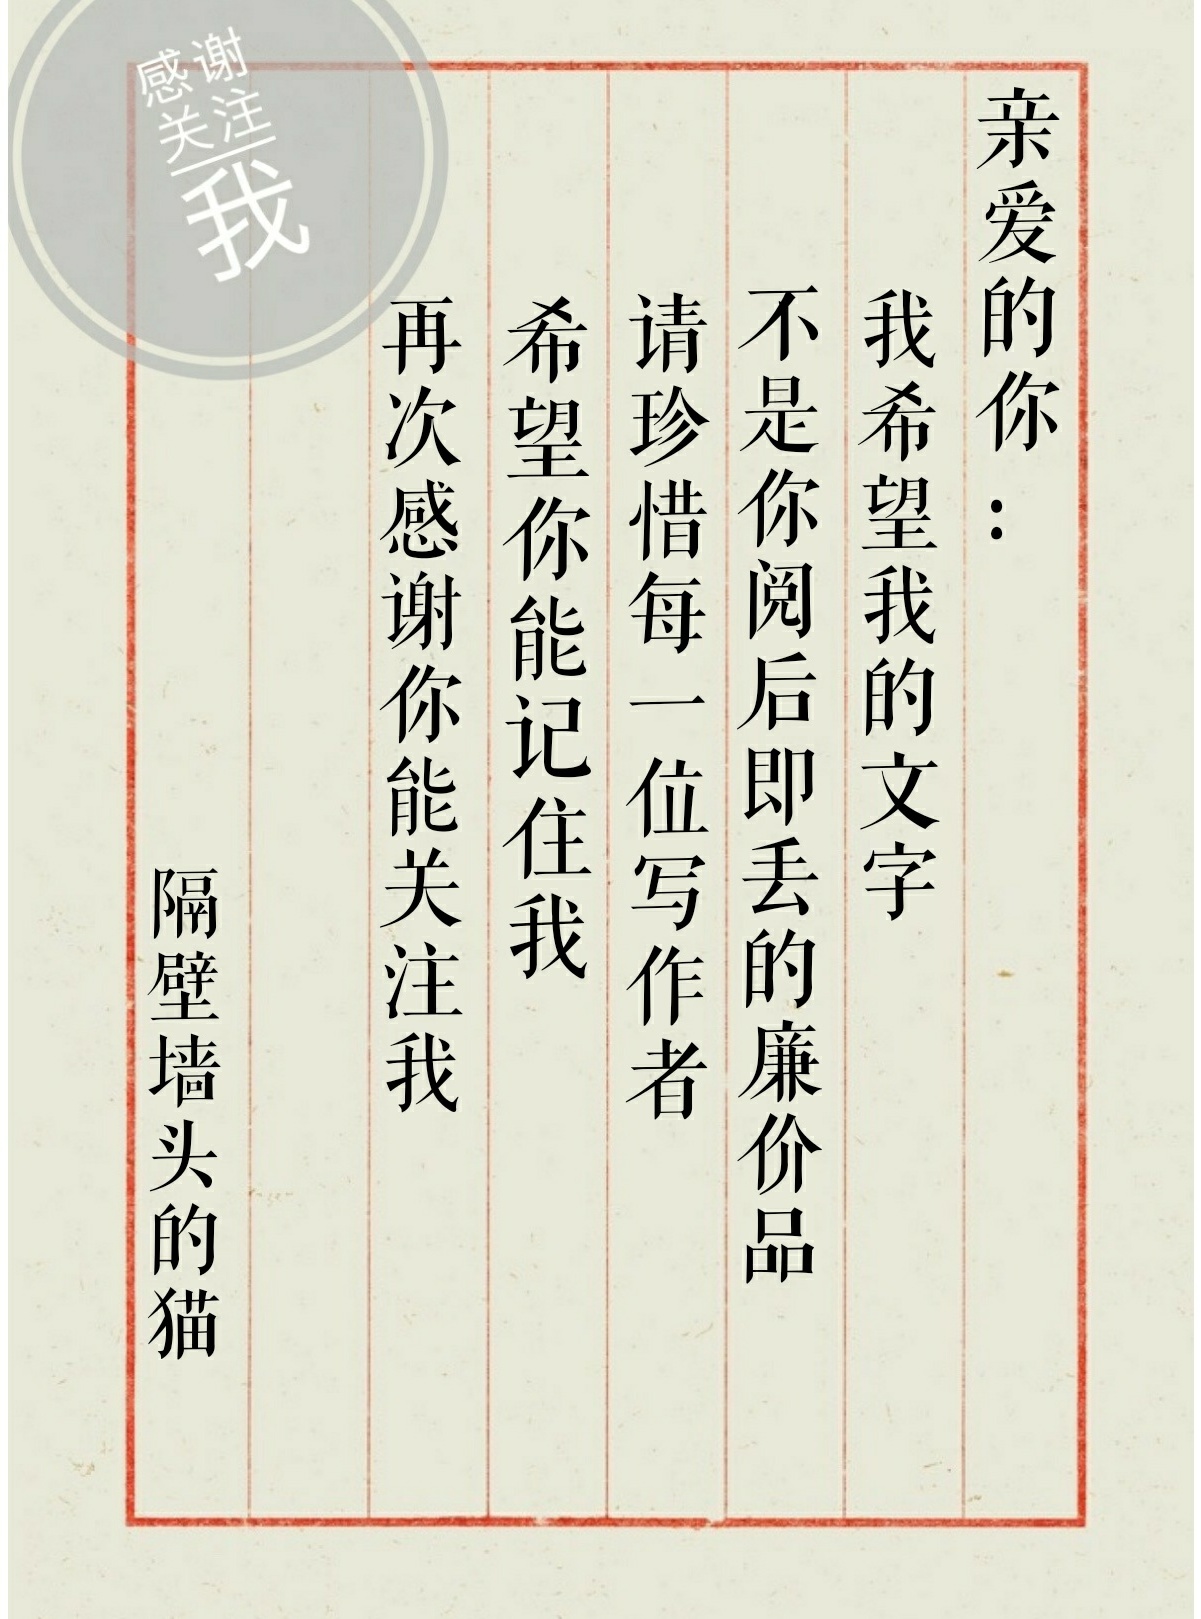 亲爱的你：
我希望我的文字
不是你阅后即丢的廉价品
请珍惜每一位写作者
希望你能记住我
再次感谢你能关注我
隔壁墙头的猫
感谢
关注
我